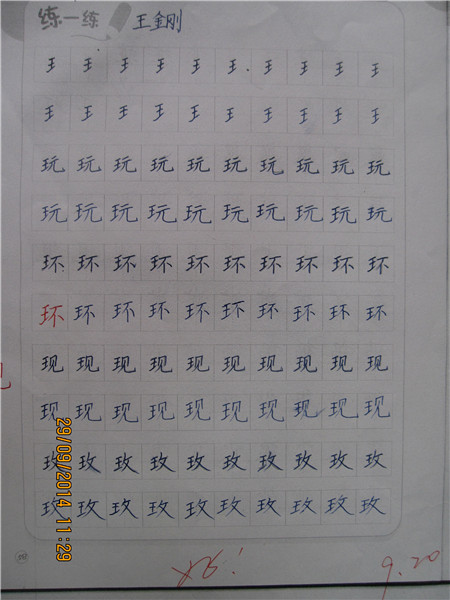 练一练 王金刚
𤣩 𤣩 𤣩 𤣩 𤣩 𤣩 𤣩 𤣩 𤣩 𤣩
𤣩 𤣩 𤣩 𤣩 𤣩 𤣩 𤣩 𤣩 𤣩 𤣩
玩 玩 玩 玩 玩 玩 玩 玩 玩 玩
玩 玩 玩 玩 玩 玩 玩 玩 玩 玩
环 环 环 环 环 环 环 环 环 环
环 环 环 环 环 环 环 环 环 环
现 现 现 现 现 现 现 现 现 现
现 现 现 现 现 现 现 现 现 现
玫 玫 玫 玫 玫 玫 玫 玫 玫 玫
玫 玫 玫 玫 玫 玫 玫 玫 玫 玫
29/09/2014 11:29
好! 9.20